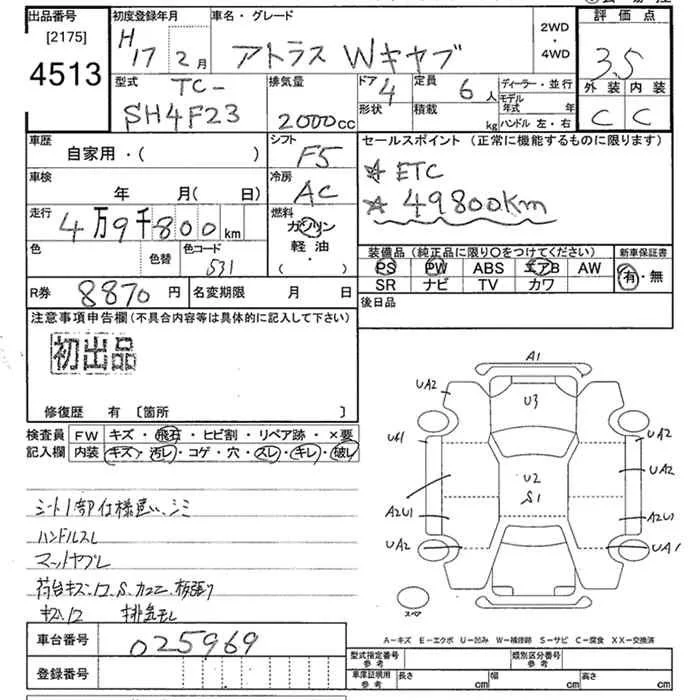 出品番号
[2175]
4513
初度登録年月
H
17 2月
車名・グレード
アトラス Wキャブ
2WD
・
4WD
評価点
3.5
外装 内装
C C
型式
TC-
SH4F23
排気量
2000cc
ドア 4
形状
定員 6人
積載 kg
ディーラー・並行
モデル年式 年
ハンドル 左・右
車歴
自家用・( )
シフト
F5
セールスポイント (正常に機能するものに限ります)
☆ ETC
☆ 49800Km
車検
年 月(日)
冷房
AC
走行
4万9千800km
燃料
ガソリン
軽油
・
( )
色
色替
色コード
531
装備品 (純正品に限り○をつけてください)
PS PW ABS エアB AW
SR ナビ TV カワ
新車保証書
有・無
R券 8870円
名変期限 月 日
後日品
注意事項申告欄(不具合内容等は具体的に記入して下さい)
初出品
修復歴 有 〔箇所 〕
検査員
記入欄
FW キズ・飛石・ヒビ割・リペア跡・×要
内装 キズ・汚レ・コゲ・穴・スレ・キレ・破レ
シート1部仕様違い、シミ
ハンドルスレ
マットヤブレ
A1
UA2
U3
UA2
UA2
U2
S1
UA2
A2U1
A2U1
UA2
UA1
スペア
A-キズ E-エクボ U-凹み W-補修跡 S-サビ C-腐食 XX-交換済
車台番号 025969
登録番号
型式指定番号
参考
類別区分番号
参考
車庫証明用
参考
長さ cm
幅 cm
高さ cm